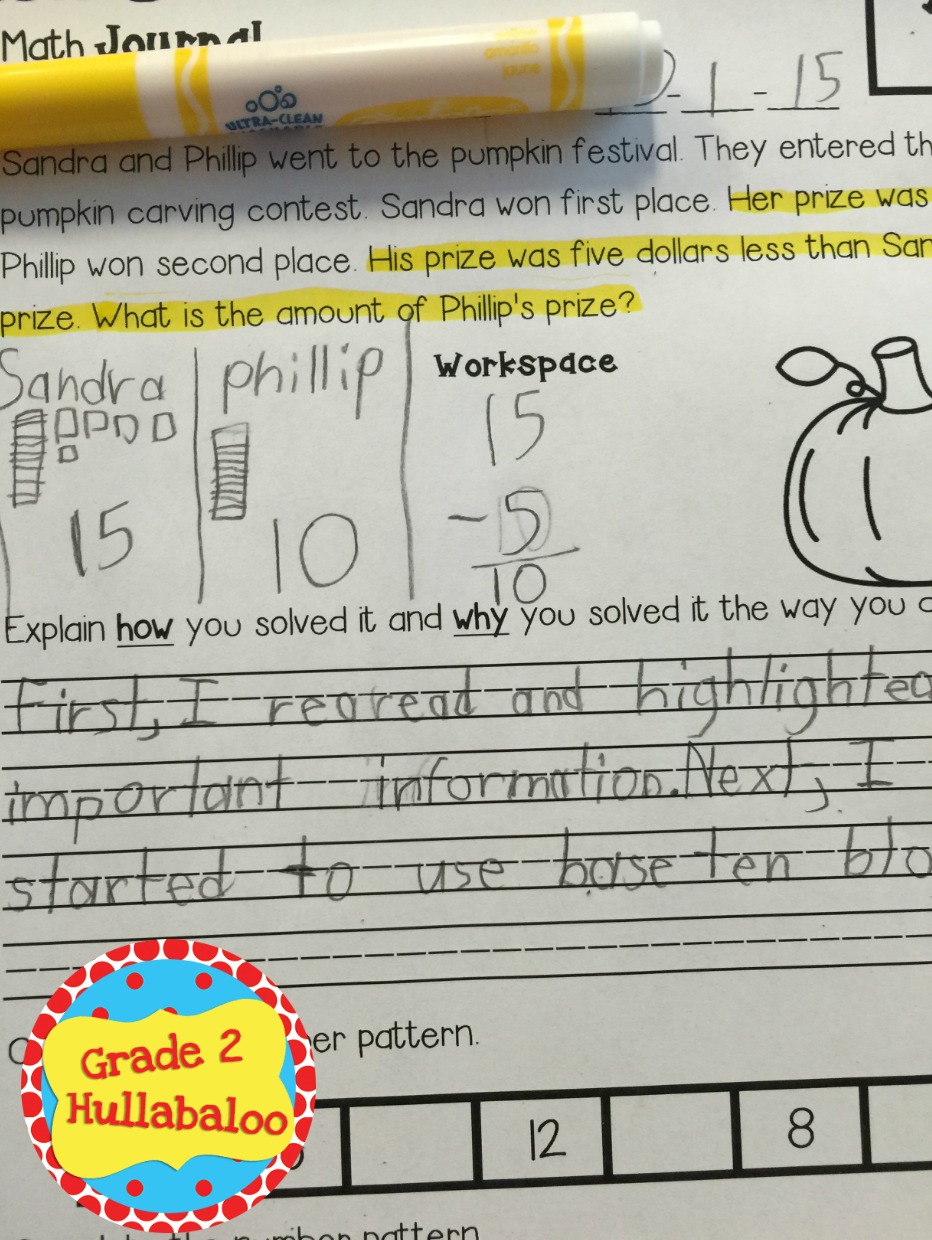 Math Journal
amarillo
jaune
ULTRA-CLEAN
-1-15
Sandra and Phillip went to the pumpkin festival. They entered th
pumpkin carving contest. Sandra won first place. Her prize was
Phillip won second place. His prize was five dollars less than San
prize. What is the amount of Phillip's prize?
Sandra phillip Workspace
15
15 10 -5
10
Explain how you solved it and why you solved it the way you
First, I reoread and highlighted
important information. Next, I
started to use base ten blo
er pattern.
12 8
Grade 2
Hullabaloo
number pattern